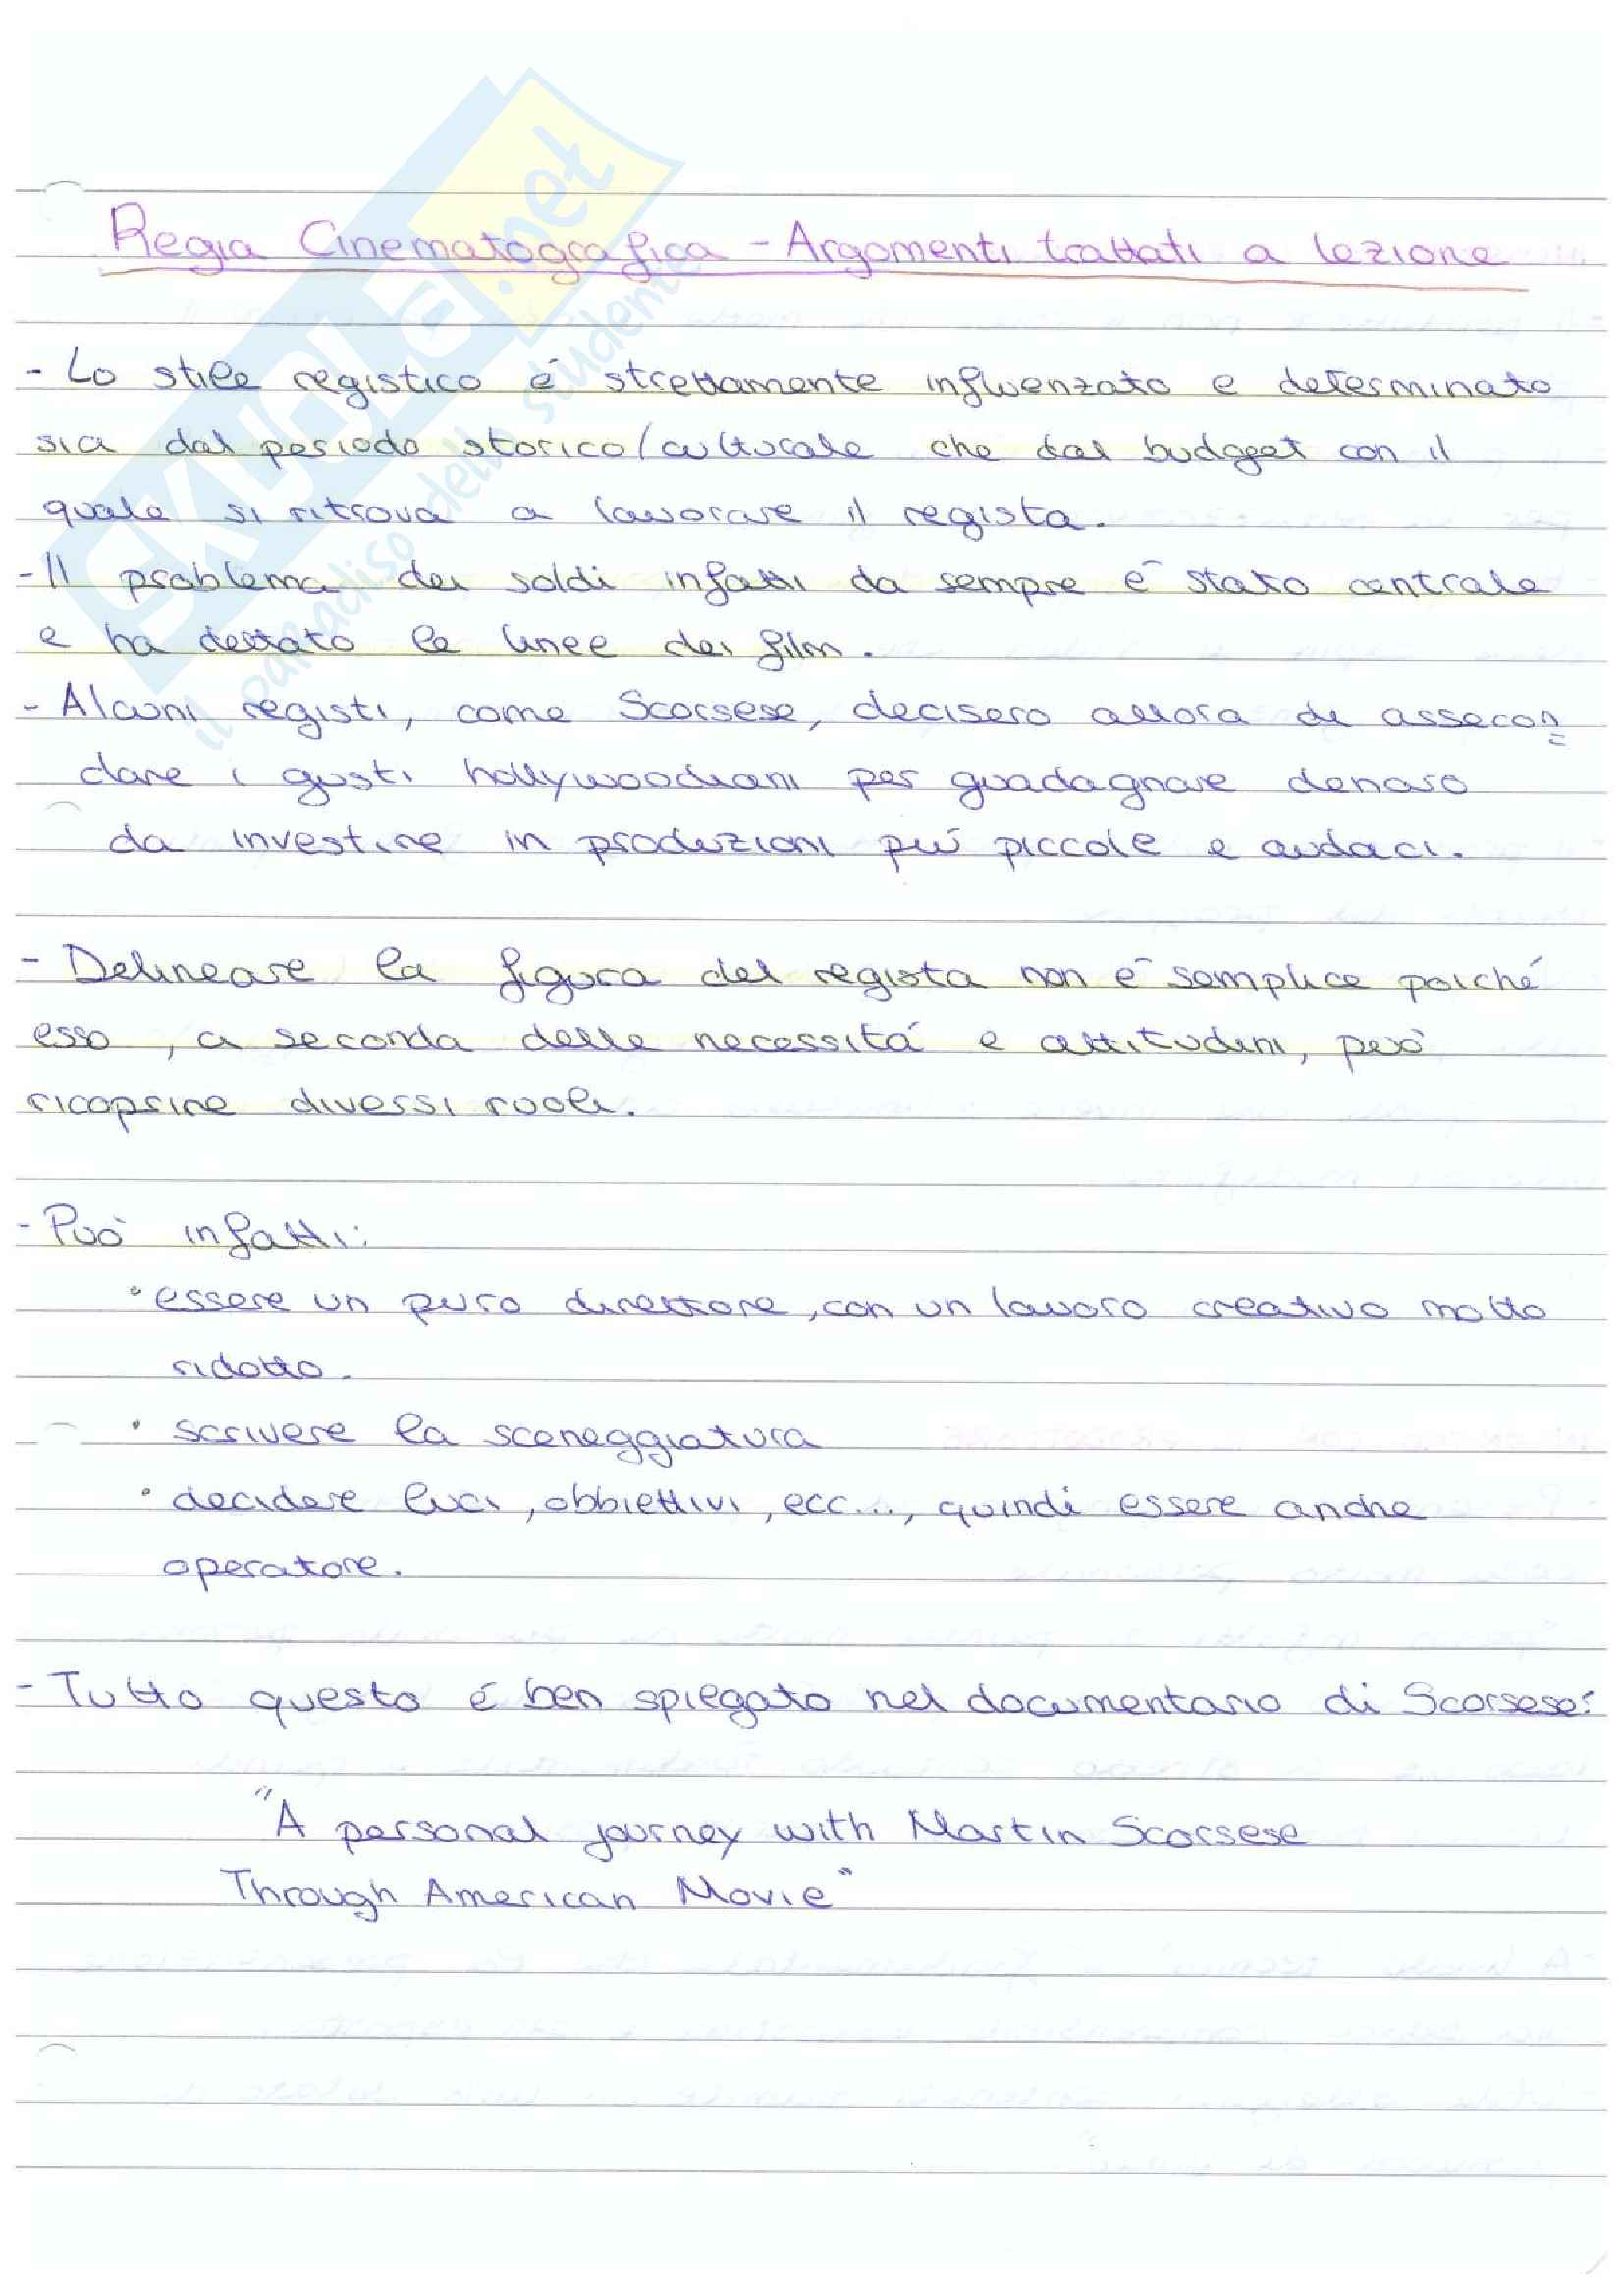 Regia Cinematografica - Argomenti trattati a lezione
- Lo stile registico é strettamente influenzato e determinato
sia dal periodo storico/culturale che dal budget con il
quale si ritrova a lavorare il regista.
- Il problema dei soldi infatti da sempre é stato centrale
e ha dettato le linee dei film.
- Alcuni registi, come Scorsese, decisero allora di assecon=
dare i gusti hollywoodiani per guadagnare denaro
da investire in produzioni piú piccole e audaci.
- Delineare la figura del regista non é semplice poiché
esso, a seconda delle necessitá e attitudini, può
ricoprire diversi ruoli.
- Può infatti:
• essere un puro direttore, con un lavoro creativo molto
ridotto.
• scrivere la sceneggiatura
• decidere luci, obbiettivi, ecc..., quindi essere anche
operatore.
- Tutto questo é ben spiegato nel documentario di Scorsese:
"A personal journey with Martin Scorsese
Through American Movie"
SKUOLA.net
il paradiso dello studente